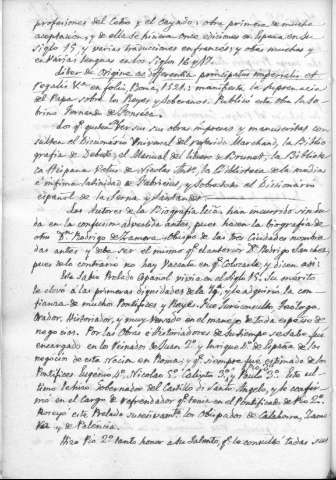 profesiones del Cetro y el Cayado: obra primera de mucha
aceptacion, y de ella se hicieron once ediciones en Lipsia, en Su
siglo 15, y varias traducciones en frances, y otras muchas y
en varias lenguas en los Siglos 16 y 17.
Liber de Origine ac differentia principatus imperialis et
Regalis &c. en folio, Roma, 1521: manifiesta la supremacia
del Papa sobre los Reyes y Soberanos. Publicó esta obra su So-
brino Fernando de Fonseca.
Los q.e quieran ver sus otras impresas y manuscritas con-
sulten el Diccionario Universal del referido Marchand, la Biblio-
grafia de Debure, el Manual del librero de Brunet, la Bibliote-
ca Hispana Vetus de Nicolas Ant.o, la Biblioteca de la media
e infima latinidad de Fabricius, y sobre todo el Diccionario
español de la Serna y Santander.
Los Autores de la Biografia Ecca. han incurrido sin du-
da en la confusion advertida antes, pues hacen la biografia de
otro D.n Rodrigo de Zamora, Obispo de las tres Ciudades nombra-
das antes y debe ser el mismo q.e el anterior D.n Rodrigo Sanchez,
pues de lo contrario no hay vacante en q.e colocarle, y dicen asi:
Este Sabio Prelado español vivia en el siglo 15. Su merito
le elevó a las primeras dignidades de la Yg.a, y le adquirió la con-
fianza de muchos Pontifices y Reyes. Fue Jurisconsulto, Teologo,
Orador, Historiador, y muy versado en el manejo de toda especie de
negocios. Por las Obras e Historiadores de su tiempo se sabe fué
encargado en los Reinados de Juan 2.o y Enrique 4.o de España de los
negocios de esta Nacion en Roma; y q.e siempre fué estimado de los
Pontifices Eugenio 4.o, Nicolas 5.o, Calixto 3.o, y Paulo 2.o. Este ul-
timo le hizo Gobernador del Castillo de Santo Angelo, y le confir-
mó en el cargo de refrendador q.e tenia en el Pontificado de Pio 2.o.
Obtuvo este Prelado sucesivamente los Obispados de Calahorra, Zamo-
ra y de Palencia.
Hizo Pio 2.o tanto honor a su talento, q.e le consultó todas sus